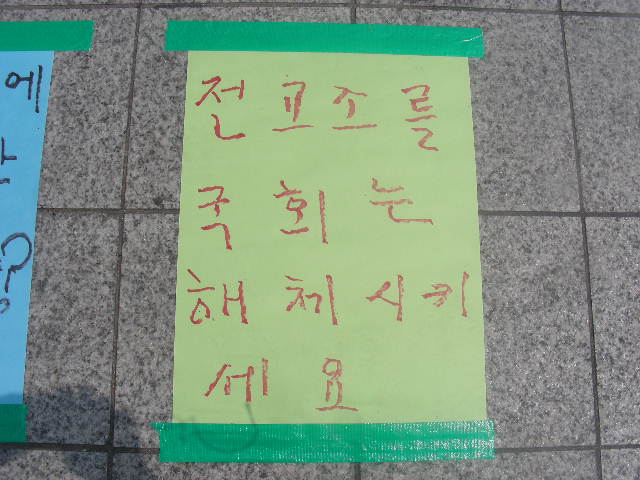 전교조를
국회는
해체시키
세요
에